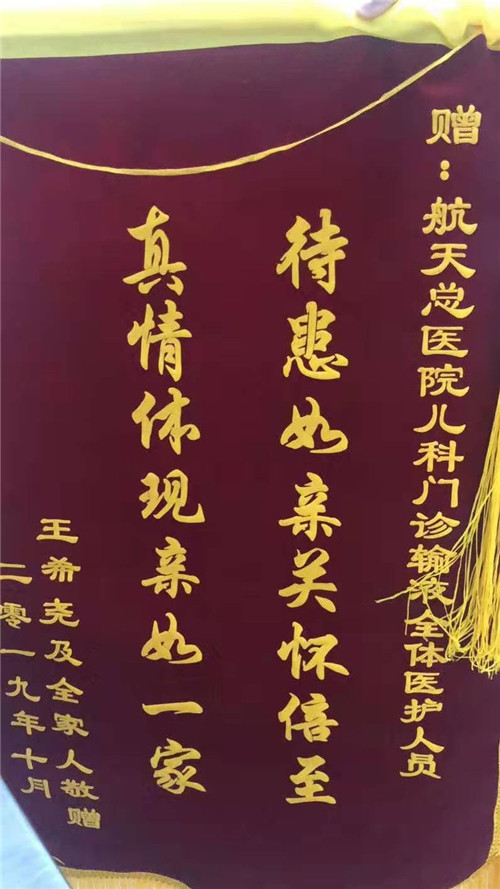 赠：航天总医院儿科门诊输液全体医护人员
待患如亲关怀倍至
真情体现亲如一家
王希尧及全家人敬赠
二零一九年十月